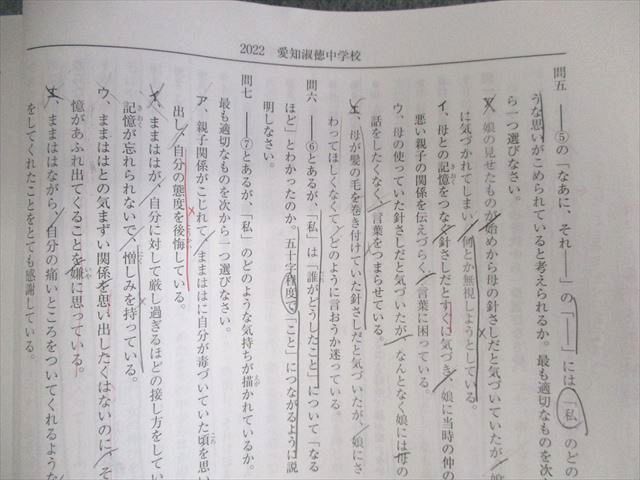 2022 愛知淑徳中学校
問五 ――⑤の「なあに、それ――」の「――」には「私」のどの
うな思いがこめられていると考えられるか。最も適切なものを次か
ら一つ選びなさい。
ア、娘の見せたものが始めから母の針さしだと気づいていたが
に気づかれてしまい、何とか無視しようとしている。
イ、母との記憶をつなぐ針さしだとすぐに気づき、娘に当時の仲の
悪い親子の関係を伝えづらく、言葉に困っている。
ウ、母の使っていた針さしだと気づいたが、なんとなく娘には母の
話をしたくなく、言葉をつまらせている。
エ、母が髪の毛を巻き付けていた針さしだと気づいたが、娘にさ
わってほしくなくて、どのように言おうか迷っている。
問六 ――⑥とあるが、「私」は「誰がどうしたこと」について「なる
ほど」とわかったのか。五十字程度で「こと」につながるように説
明しなさい。
問七 ――⑦とあるが、「私」のどのような気持ちが描かれているか。
最も適切なものを次から一つ選びなさい。
ア、親子関係がこじれて、ままははに自分が毒づいていた頃を思い
出し、自分の態度を後悔している。
イ、ままははが、自分に対して厳し過ぎるほどの接し方をしてい
記憶が忘れられないで、憎しみを持っている。
ウ、ままははとの気まずい関係を思い出したくはないのに、そ
憶があふれ出てくることを嫌に思っている。
エ、ままははながら、自分の痛いところをついてくれるような
をしてくれたことをとても感謝している。